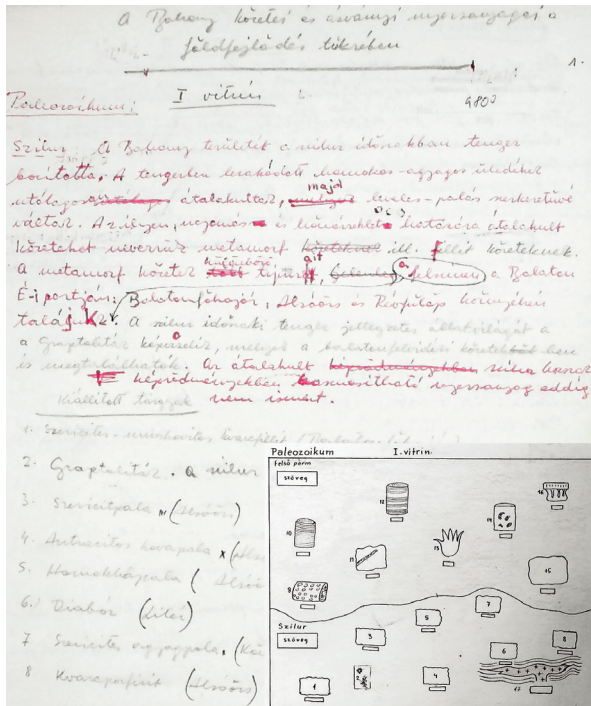 A Bakony kőzetei és ásványi nyersanyagai a
földfejlődés tükrében
1.
I vitrin
9800
Paleozoikum:
Szilur A Bakony területét a szilur időszakban tenger
borította. A tengerben lerakódott homokos-agyagos üledékek
utólagosan átalakultak, majd leveles-palás szerkezetűvé
váltak. Az ilyen, nyomás és hőmérséklet hatására átalakult
kőzeteket nevezzük metamorf ill. fillit kőzeteknek.
A metamorf kőzetek különböző típusait a felszínen a Balaton
É-i partján: Balatonfőkajár, Alsóörs és Révfülöp környékén
találjuk. A szilur időszaki tenger jellegzetes állatvilágát a
a Graptoliták képviselik, melyek a balatonfelvidéki kőzetekben
is megtalálhatók. Az átalakult szilur
képződményekben hasznosítható nyersanyag eddig
nem ismert.
Kiállított tárgyak
1. Szericites-muszkovitos kvarcfillit
2. Graptoliták. a szilur
3. Szericitpala (Alsóörs)
4. Antracitos kovapala
5. Homokkőpala (Alsóö
6. Diabáz (Litér)
7 Szericites agyagpala,
8 Kvarcporfirit (Alsóörs)
Paleozoikum I. vitrin.
Felső perm
szöveg
12
16
10
14
13
11
15
9
7
5
Szilur
szöveg
3
8
6
4
2
1
17